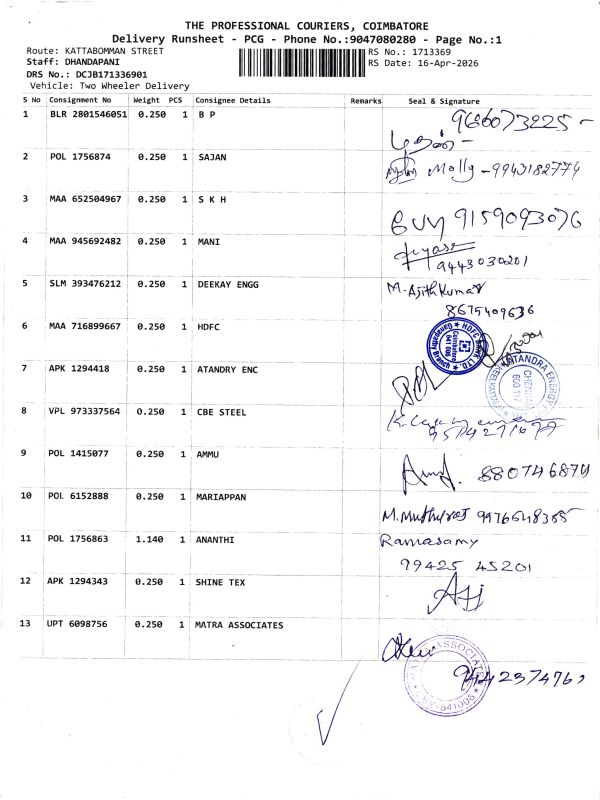 THE PROFESSIONAL COURIERS, COIMBATORE
Delivery Runsheet - PCG - Phone No.:9047080280 - Page No.:1
Route: KATTABOMMAN STREET
RS No.: 1713369
Staff: DHANDAPANI
RS Date: 16-Apr-2026
DRS No.: DCJB171336901
Vehicle: Two Wheeler Delivery
S No Consignment No Weight PCS Consignee Details Remarks Seal & Signature
1 BLR 2801546051 0.250 1 B P
2 POL 1756874 0.250 1 SAJAN Molly - 9943182774
3 MAA 652504967 0.250 1 S K H 9159093076
4 MAA 945692482 0.250 1 MANI
9443030201
5 SLM 393476212 0.250 1 DEEKAY ENGG M. Ajith Kumar
8675409636
6 MAA 716899667 0.250 1 HDFC HDFC BANK LTD. Coimbatore 641 006 Ganapathy Branch
7 APK 1294418 0.250 1 ATANDRY ENC TATANDRA ENERGY
8 VPL 973337564 0.250 1 CBE STEEL
9 POL 1415077 0.250 1 AMMU 880746874
10 POL 6152888 0.250 1 MARIAPPAN M. Muthuraj 9976648355
11 POL 1756863 1.140 1 ANANTHI Ramasamy
99425 45201
12 APK 1294343 0.250 1 SHINE TEX
13 UPT 6098756 0.250 1 MATRA ASSOCIATES